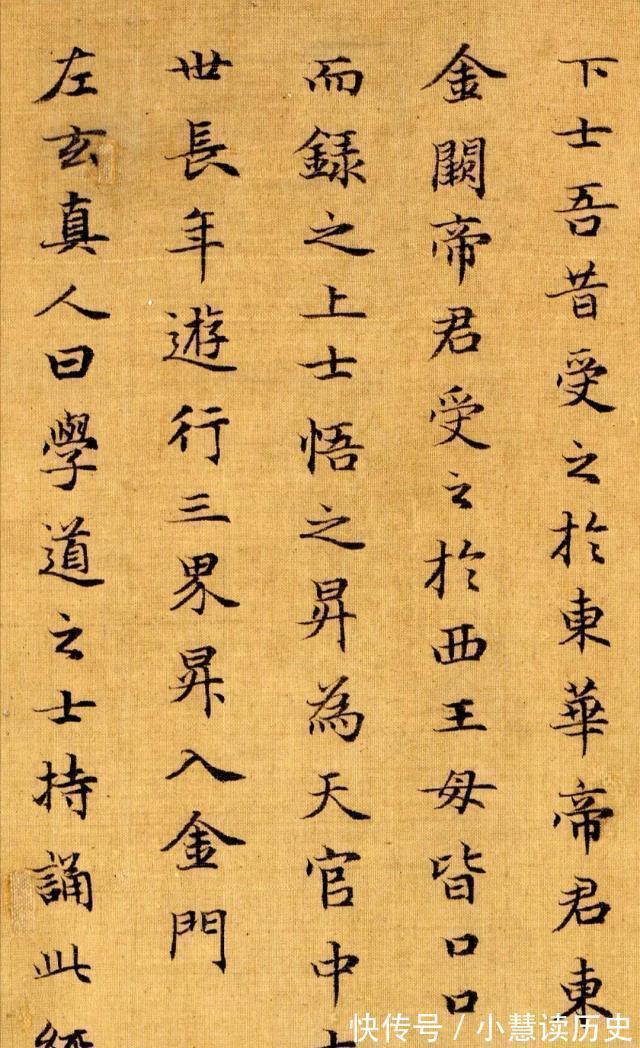 下士吾昔受之於東華帝君東
金闕帝君受之於西王母皆口口
而録之上士悟之昇為天官中
世長年遊行三界昇入金門
左玄真人曰學道之士持誦此
快传号/小慧读历史